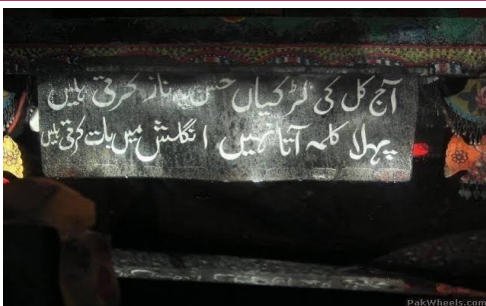 آج کل کی لڑکیاں حسن پہ ناز کرتی ہیں
پہلا کلمہ آتا نہیں انگلش میں بات کرتی ہیں
PakWheels.com